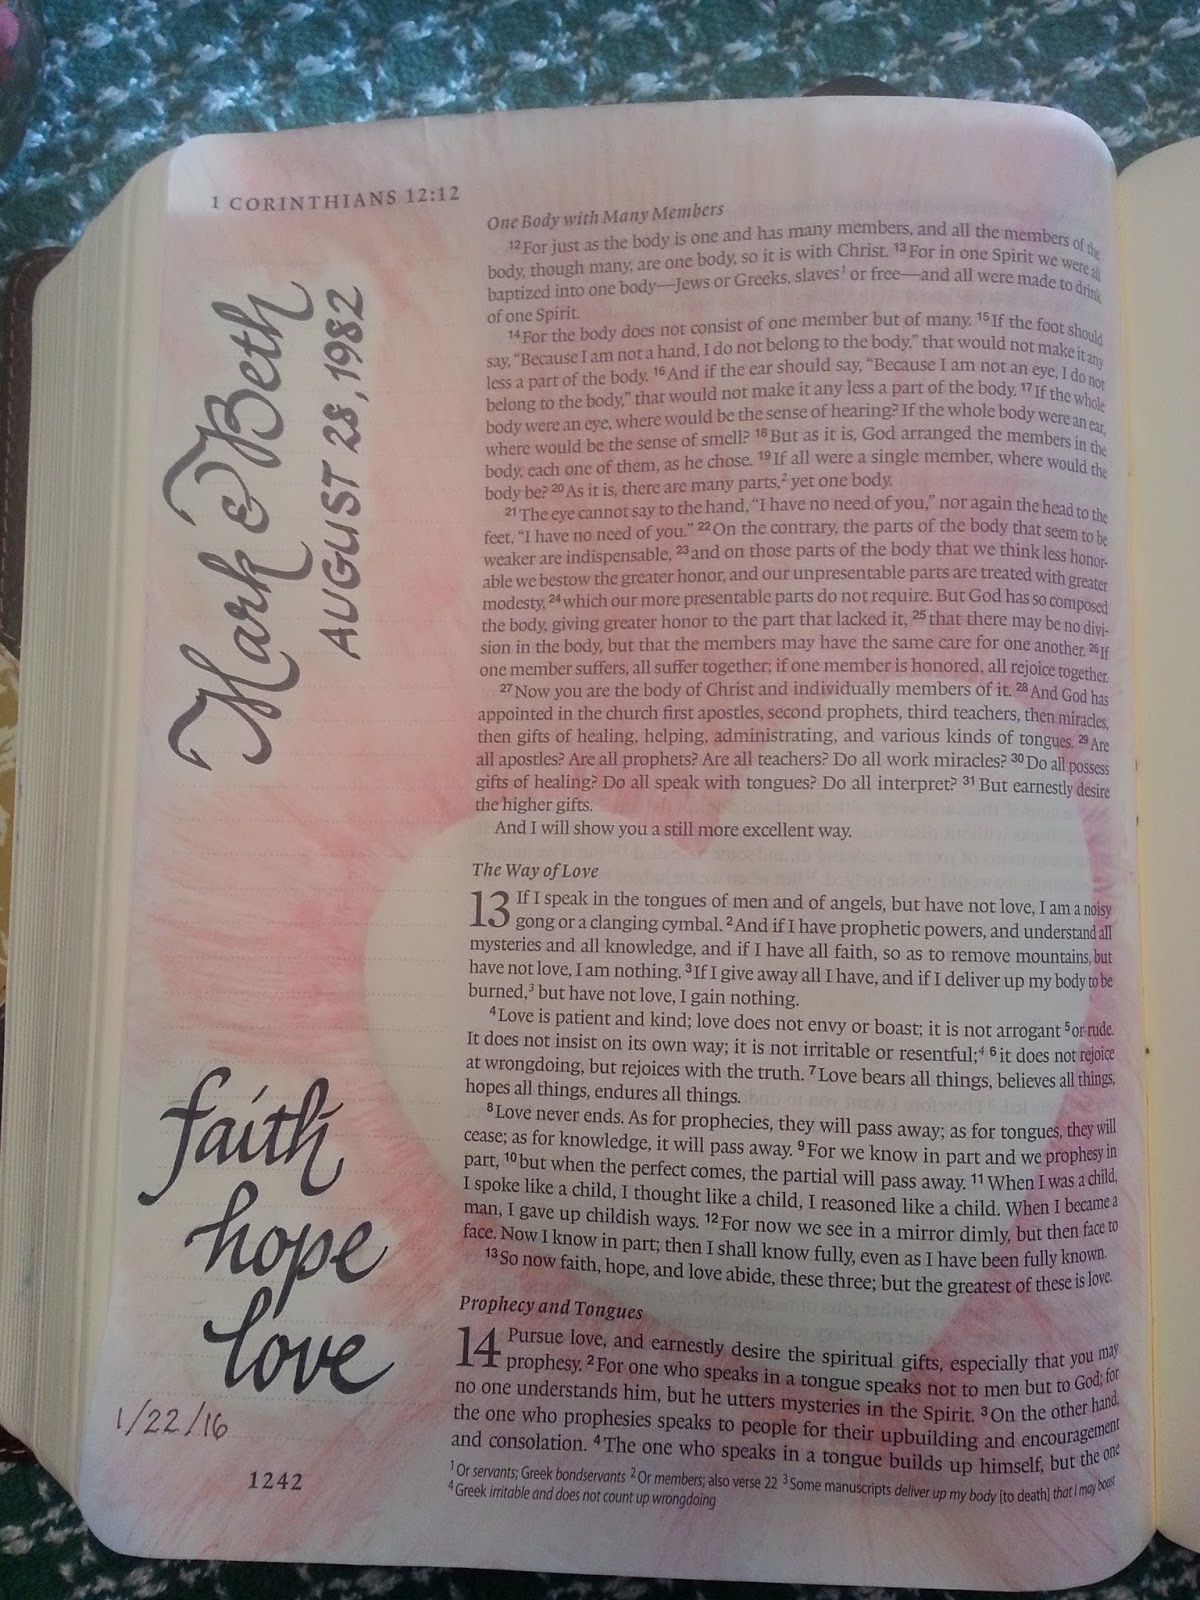 1 CORINTHIANS 12:12
Mark & Beth
AUGUST 28, 1982
faith
hope
love
1/22/16
1242
One Body with Many Members
12 For just as the body is one and has many members, and all the members of the
body, though many, are one body, so it is with Christ. 13 For in one Spirit we were all
baptized into one body—Jews or Greeks, slaves1 or free—and all were made to drink
of one Spirit.
14 For the body does not consist of one member but of many. 15 If the foot should
say, “Because I am not a hand, I do not belong to the body,” that would not make it any
less a part of the body. 16 And if the ear should say, “Because I am not an eye, I do not
belong to the body,” that would not make it any less a part of the body. 17 If the whole
body were an eye, where would be the sense of hearing? If the whole body were an ear,
where would be the sense of smell? 18 But as it is, God arranged the members in the
body, each one of them, as he chose. 19 If all were a single member, where would the
body be? 20 As it is, there are many parts,2 yet one body.
21 The eye cannot say to the hand, “I have no need of you,” nor again the head to the
feet, “I have no need of you.” 22 On the contrary, the parts of the body that seem to be
weaker are indispensable, 23 and on those parts of the body that we think less honor-
able we bestow the greater honor, and our unpresentable parts are treated with greater
modesty, 24 which our more presentable parts do not require. But God has so composed
the body, giving greater honor to the part that lacked it, 25 that there may be no divi-
sion in the body, but that the members may have the same care for one another. 26 If
one member suffers, all suffer together; if one member is honored, all rejoice together.
27 Now you are the body of Christ and individually members of it. 28 And God has
appointed in the church first apostles, second prophets, third teachers, then miracles,
then gifts of healing, helping, administrating, and various kinds of tongues. 29 Are
all apostles? Are all prophets? Are all teachers? Do all work miracles? 30 Do all possess
gifts of healing? Do all speak with tongues? Do all interpret? 31 But earnestly desire
the higher gifts.
And I will show you a still more excellent way.
The Way of Love
13 If I speak in the tongues of men and of angels, but have not love, I am a noisy
gong or a clanging cymbal. 2 And if I have prophetic powers, and understand all
mysteries and all knowledge, and if I have all faith, so as to remove mountains, but
have not love, I am nothing. 3 If I give away all I have, and if I deliver up my body to be
burned,3 but have not love, I gain nothing.
4 Love is patient and kind; love does not envy or boast; it is not arrogant 5 or rude.
It does not insist on its own way; it is not irritable or resentful;4 6 it does not rejoice
at wrongdoing, but rejoices with the truth. 7 Love bears all things, believes all things,
hopes all things, endures all things.
8 Love never ends. As for prophecies, they will pass away; as for tongues, they will
cease; as for knowledge, it will pass away. 9 For we know in part and we prophesy in
part, 10 but when the perfect comes, the partial will pass away. 11 When I was a child,
I spoke like a child, I thought like a child, I reasoned like a child. When I became a
man, I gave up childish ways. 12 For now we see in a mirror dimly, but then face to
face. Now I know in part; then I shall know fully, even as I have been fully known.
13 So now faith, hope, and love abide, these three; but the greatest of these is love.
Prophecy and Tongues
14 Pursue love, and earnestly desire the spiritual gifts, especially that you may
prophesy. 2 For one who speaks in a tongue speaks not to men but to God; for
no one understands him, but he utters mysteries in the Spirit. 3 On the other hand,
the one who prophesies speaks to people for their upbuilding and encouragement
and consolation. 4 The one who speaks in a tongue builds up himself, but the one
1 Or servants; Greek bondservants 2 Or members; also verse 22 3 Some manuscripts deliver up my body [to death] that I may boast
4 Greek irritable and does not count up wrongdoing